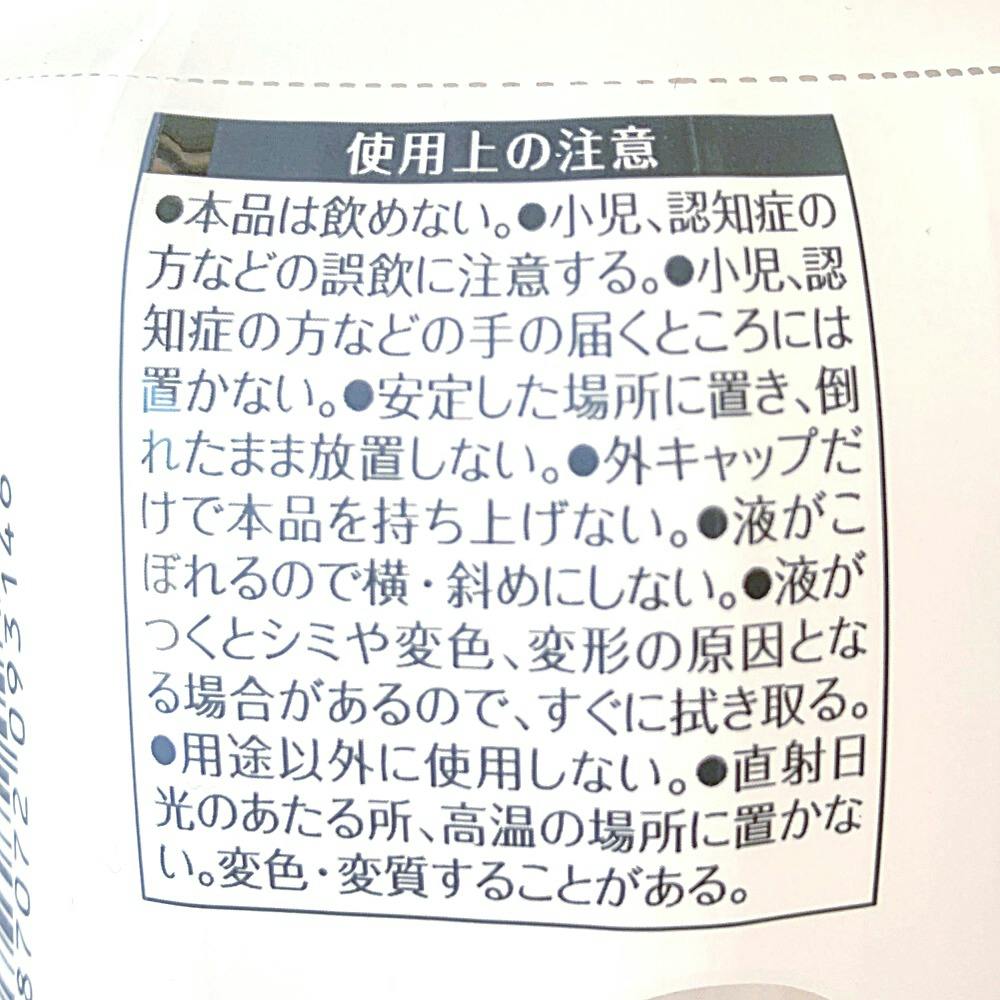 使用上の注意
●本品は飲めない。●小児、認知症の
方などの誤飲に注意する。●小児、認
知症の方などの手の届くところには
置かない。●安定した場所に置き、倒
れたまま放置しない。●外キャップだ
けで本品を持ち上げない。●液がこ
ぼれるので横・斜めにしない。●液が
つくとシミや変色、変形の原因とな
る場合があるので、すぐに拭き取る。
●用途以外に使用しない。●直射日
光のあたる所、高温の場所に置かな
い。変色・変質することがある。